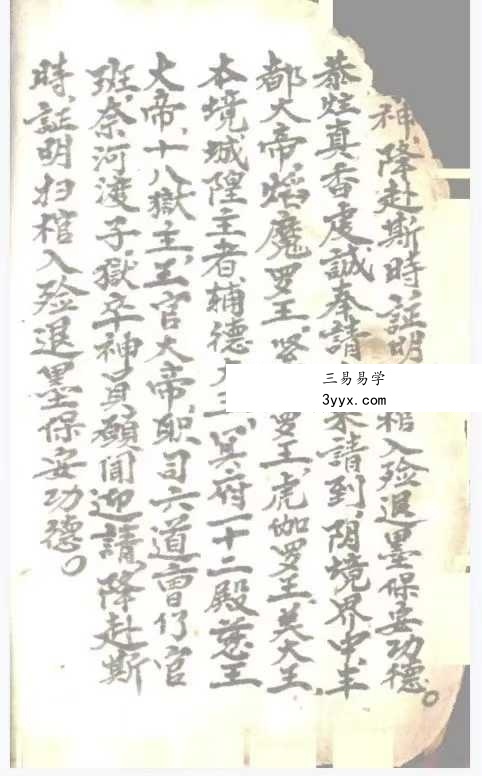 神,降赴斯時,証明 棺入殓退墨保安功德。
恭炷真香虔誠奉請 請到,阴境界中,羊
都大帝,焰魔罗王,罗王,虎伽罗王,美大王,
本境城隍主者,輔德大王,冥府一十二殿慈王
大帝,十八獄主,王官大帝,職司六道曹仃官
班,奈河渡子,獄卒神員,願聞迎請,降赴斯
時,証明扫棺入殓退墨保安功德。
三易易学
3yyx.com